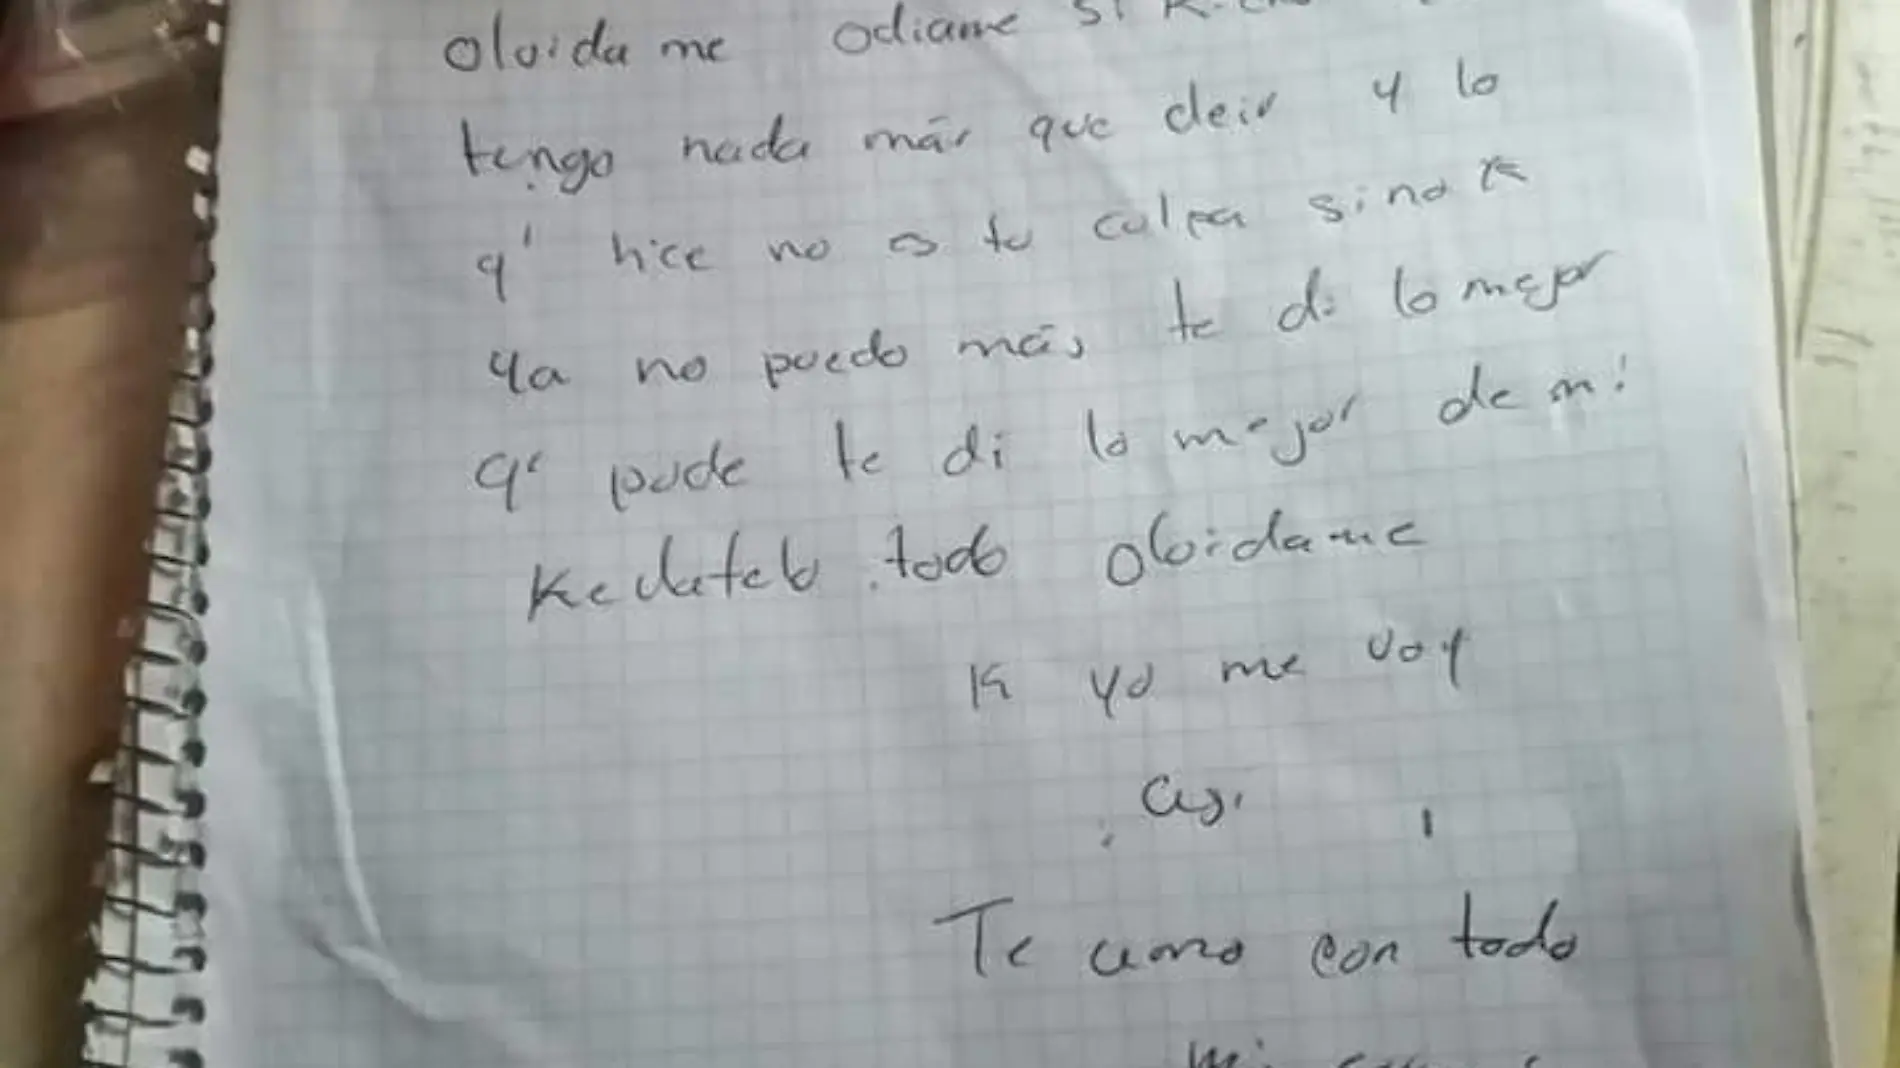 Olvida me odiame si
tengo nada más que deir y lo
q' hice no es tu culpa sino k
ya no puedo más te di lo mejor
q' pude te di lo mejor de mi
Kedatelo todo olvidame
K yo me voy
asi
Te amo con todo
mi